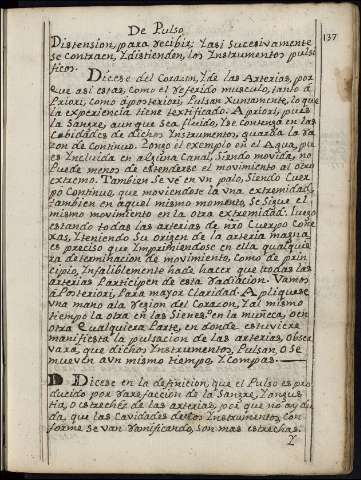 De Pulso
137
Distension, para recibir; Y asi sucesivamente
se contraen, Y distienden, los Instrumentos pulsi-
ficos.
Dicese del Corazon, Y de las Arterias, por
que asi estas, como el referido musculo, tanto à
Priori, como à posteriori, Pulsan Xuntamente, lo que
la experiencia tiene textificado. A priori, pues
la Sangre, aunque sea fluida, se contenga en las
Cabidades de dichos Instrumentos, guarda la ra
zon de Continuo. Pongo el exemplo en el Agua, pu
es Incluida en alguna Canal, Siendo movida, no
Puede menos de estenderse el movimiento al otro
extremo. Tambien se vè en un palo, Siendo Cuer
po Continuo, que moviendose la una extremidad,
tambien en aquel mismo momento, se sigue el
mismo movimiento en la otra extremidad. Luego
estando todas las arterias de nro Cuerpo Cone
xas, Y teniendo Su origen de la arteria magna,
es preciso que Imprimiendose en ella qualquie
ra determinacion de movimiento, como de prin
cipio, Infaliblemente hade hacer que todas las
arterias Participen de esta radiacion. Vamos
à Posteriori, Para mayor Claridad. Apliquese
una mano ala region del Corazon, Y al mismo
tiempo la otra en las Sienes, en la muñeca, o en
otra qualquiera Parte, en donde estuviere
manifiesta la pulsacion de las arterias, obser
varà, que dichos Instrumentos, Pulsan, o se
mueven a un mismo tiempo, Y compas.
D Dicese en la definicion, que el Pulso es pro
ducido por rarefaccion de la Sangre, Y angus
tia, o estrechez de las arterias, por que no ay du
da, que las Cavidades de los Instrumentos, Con
forme se van ramificando, son mas estrechas.
Y